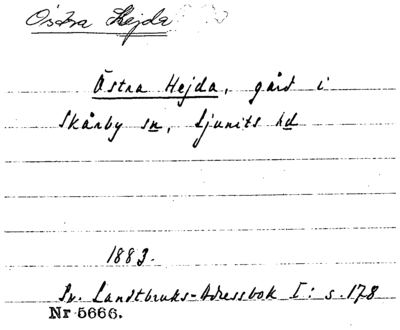 Östra Hejda
Östra Hejda, gård i
Skårby sn, Ljunits hd
1883.
Sv. Landtbruks-Adressbok I: s. 178
Nr 5666.